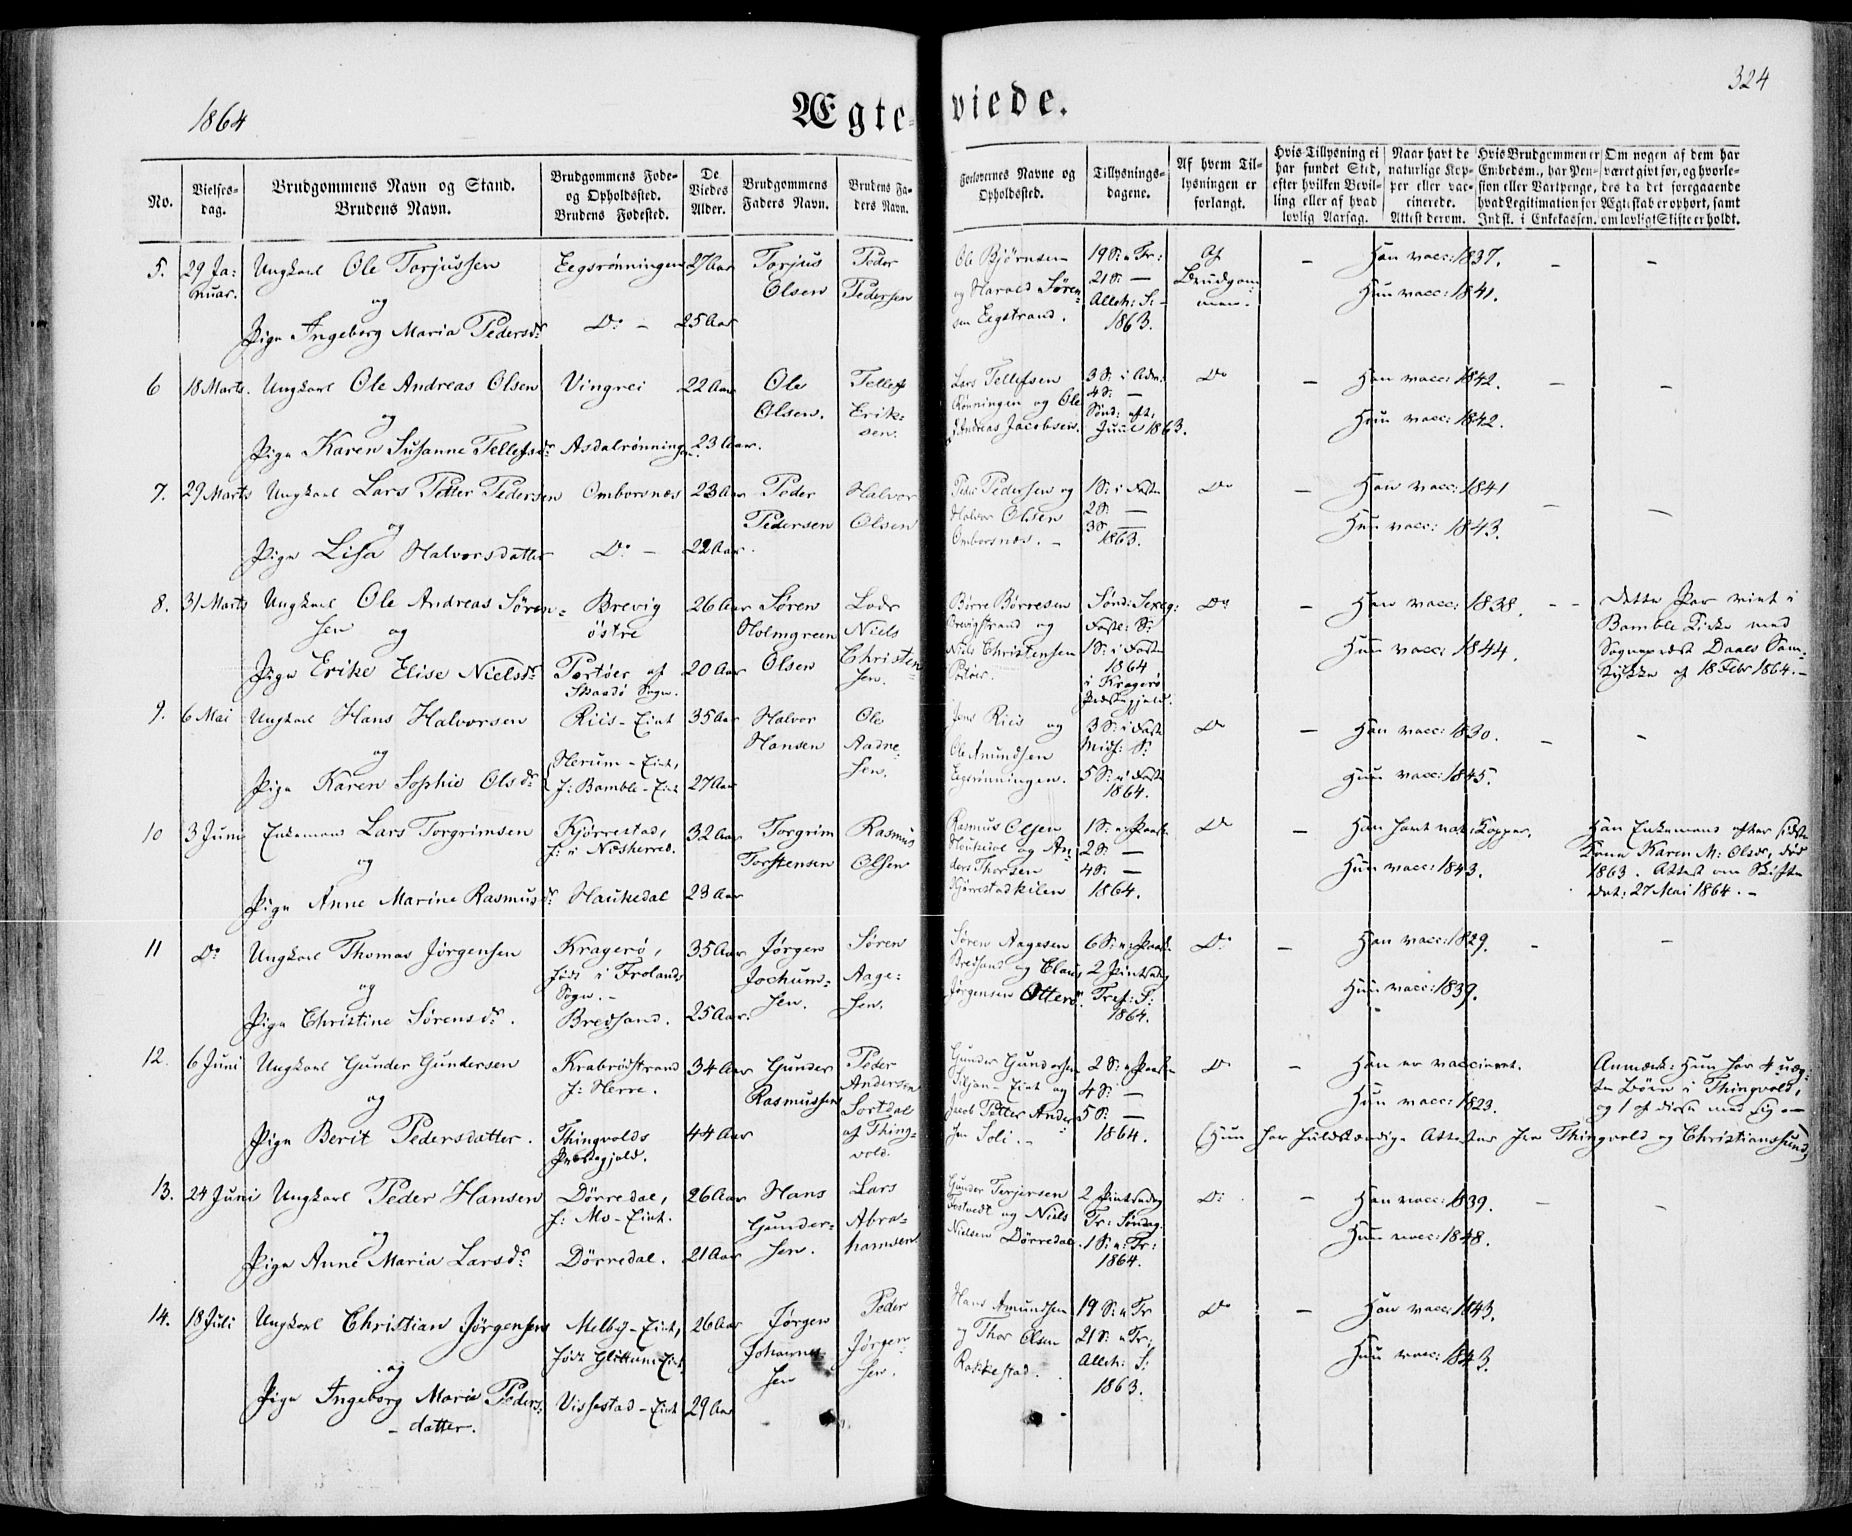 1864
Ægteviede.
324
No.
Vielses-
dag.
Brudgommens Navn og Stand.
Brudens Navn.
Brudgommens Føde-
og Opholdssted.
Brudens Fødested.
De
Viedes
Alder.
Brudgommens
Faders Navn.
Brudens Fa-
ders Navn.
Forlovernes Navne og
Opholdssted.
Tillysnings-
dagene.
Af hvem Til-
lysningen er
forlangt.
Hvis Tillysning ei
har fundet Sted,
efter hvilken Bevil-
ling eller af hvad
lovlig Aarsag.
Naar havt de
naturlige Kop-
per eller vac-
cinerede.
Attest derom.
Hvis Brudgommen er
Embedsm., har Pen-
sion eller Vartpenge,
hvad Legitimation for
Indsk. i Enkekassen.
Om nogen af dem har
været givt før, og hvorle-
des da det foregaaende
Ægteskab er ophørt, samt
om lovligt Skifte er holdt.
5. 29 Ja:
nuar.
Ungkarl Ole Torjussen
og
Pige Ingeborg Maria Pedersdr
Eegsrønningen
Do –
27 Aar
25 Aar
Torjus
Olsen
Peder
Pedersen
Ole Bjørnsen
og Harald Søren-
sen Eegstrand.
19 S: e Tr:
21 S: —
Alleh: S: –
1863.
Af
Brudgom
men.
–
Han vacc: 1837.
Hun vacc: 1841.
–
–
6 18 Marts.
Ungkarl Ole Andreas Olsen
og
Pige Karen Susanne Tellefsdr
Vingrei
Asdalrønningen
22 Aar
23 Aar.
Ole
Olsen.
Tellef
Erik-
sen.
Lars Tellefsen
Rønningen og Ole
Andreas Jacobsen.
3 S: i Adv:
4 S: —
Sønd: eft.
Juul 1863.
Do
–
Han vacc: 1842.
Hun vacc: 1842.
–
–
7. 29 Marts
Ungkarl Lars Petter Pedersen
og
Pige Lisa Halvorsdatter
Omborsnæs
Do –
23 Aar
22 Aar.
Peder
Pedersen
Halvor
Olsen
Peder Pedersen og
Halvor Olsen
Omborsnæs. –
1 S: i Faste
2 S: —
3 S: —
1863.
Do
–
Han vacc: 1841
Hun vacc: 1843.
–
–
8. 31 Marts
Ungkarl Ole Andreas Søren-
sen og
Pige Erike Elise Nielsdr
Brevig
østre
Portøer af
Skaadø Sogn.
26 Aar
20 Aar
Søren
Holmgreen
Olsen
Lods
Niels
Christen-
sen.
Børre Børresen
Brevigstrand og
Niels Christensen
Portøer.
Sønd: Sexag:
Fastel: S:
1 S: i Faste
1864
i Kragerø
Præstegjeld.
Do
–
Han vacc: 1838.
Hun vacc: 1844.
– –
Dette Par viet i
Bamble Kirke med
Sognepræst Daaes Sam-
tykke af 18 Febr 1864. –
9. 6 Mai
Ungkarl Hans Halvorsen
og
Pige Karen Sophie Olsdr
Riis-Eiet
Herum-Eiet,
f: Bamble-Eiet
35 Aar
27 Aar
Halvor
Hansen
Ole
Aadne-
sen.
Jens Riis og
Ole Amundsen
Eegsrønningen.
3 S: i Faste
Midf: S:
5 S: i Faste
1864.
Do
–
Han vacc: 1830.
Hun vacc: 1845.
–
–
10 3 Juni
Enkemand Lars Torgrimsen
og
Pige Anne Marine Rasmusdr
Kjørrestad,
f: i Næsherred.
Haukedal
32 Aar
23 Aar
Torgrim
Torstensen
Rasmus
Olsen
Rasmus Olsen
Haukedal og An-
ders Thorsen
Kjørrestadkilen
1 S: e Paaske
2 S: —
4 S: —
1864.
Do
–
Han havt nat: Kopper.
Hun vacc: 1843.
Han Enkemand efter sidste
Kone Karen M: Olsdr, død
1863. Attest om Skifte
dat: 27 Mai 1864. –
11 Do
Ungkarl Thomas Jørgensen
og
Pige Christine Sørensdr.
Kragerø,
født i Frolands
Sogn. –
Bredsand.
35 Aar
25 Aar.
Jørgen
Jochum-
sen.
Søren
Aage-
sen.
Søren Aagesen
Bredsand og Claus
Jørgensen Otterø.
6 S: e: Paask:
2 Pintsedag
Tref: S:
1864.
Do
–
Han vacc: 1829.
Hun vacc: 1839.
–
–
12. 6 Juni
Ungkarl Gunder Gundersen
og
Pige Berit Pedersdatter.
Krabrødstrand
f: Herre.
Thingvolds
Præstegjeld.
34 Aar
44 Aar
Gunder
Rasmussen
Peder
Andersen
Sortdal
af Thing-
vold.
Gunder Gundersen
Skjøn-Eiet og
Jacob Petter Ander
sen Soli. –
2 S: e Paaske
4 S: —
5 S: —
1864.
Do
–
Han er vaccineret.
Hun vacc: 1823.
Anmærk: Hun har 4 uæg-
te Børn i Thingvold,
og 1 af disse med sig. –
(Hun har fuldstændige Attester fra Thingvold og Christianssund)
13. 24 Juni
Ungkarl Peder Hansen
og
Pige Anne Maria Larsdr
Dørredal,
f: Mo-Eiet.
Dørredal.
26 Aar
21 Aar
Hans
Gunder-
sen.
Lars
Abra-
hamsen
Gunder Terjersen
Tostvedt og Niels
Nielsen Dørredal.
2 Pintsedag
Tr: Søndag.
1 S: e: Tr:
1864.
Do
–
Han vacc: 1839.
Hun vacc: 1848.
–
–
14. 18 Juli
Ungkarl Christian Jørgensen
og
Pige Ingeborg Marie Peders-
datter.
Melby-Eiet,
født Glittum-Eiet
Vissestad-Eiet
26 Aar
29 Aar
Jørgen
Johannes-
sen
Peder
Jørgen-
sen.
Hans Amundsen
og Thor Olsen
Rakkestad.
19 S: e Tr
21 S: e Tr:
Alleh: S:
1863.
Do
–
Han vacc: 1843.
Hun vacc: 1843.